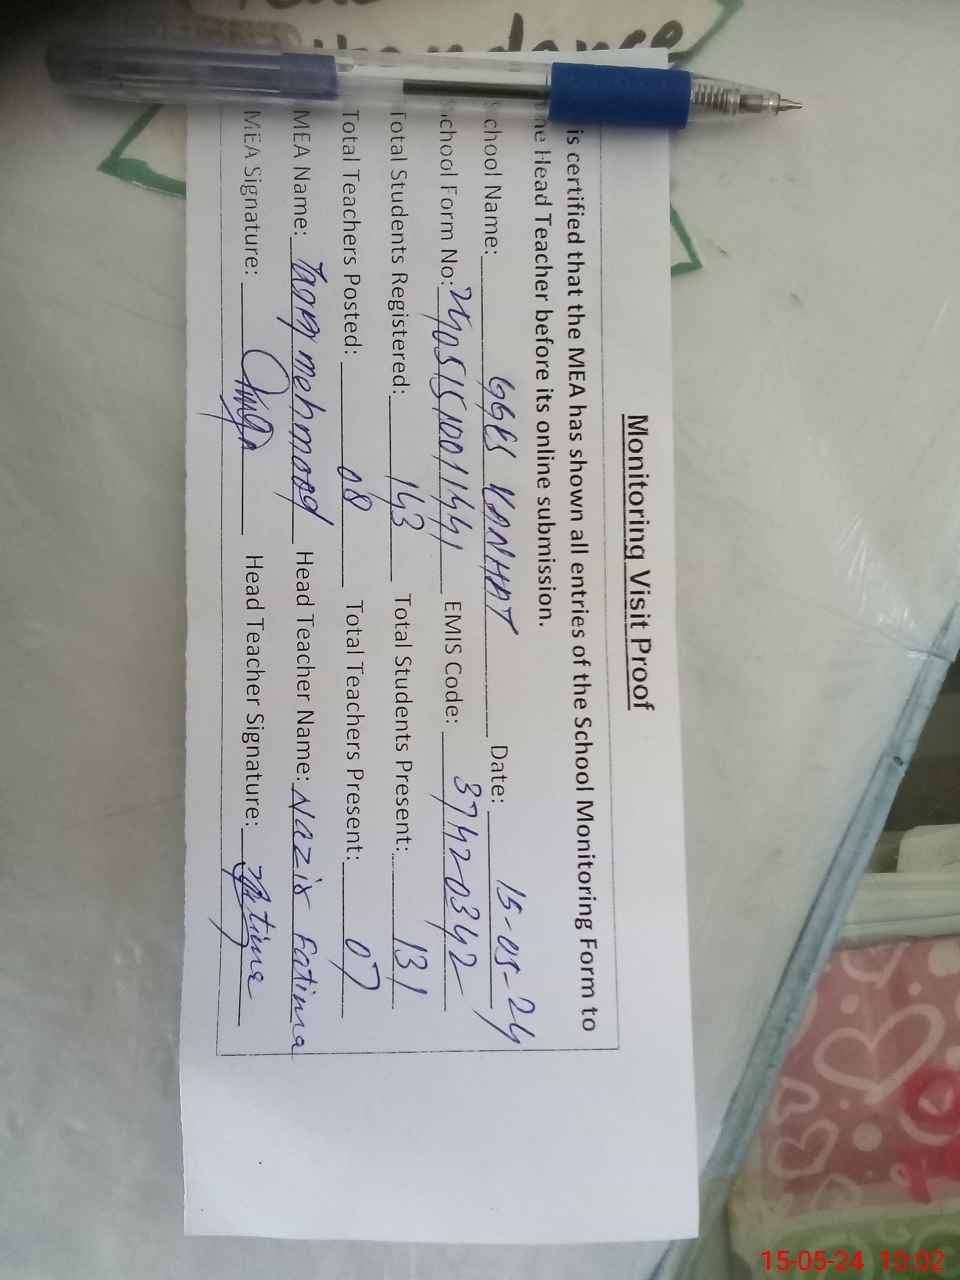 Monitoring Visit Proof
is certified that the MEA has shown all entries of the School Monitoring Form to
he Head Teacher before its online submission.
chool Name: GGES KANHAT Date: 15-05-24
chool Form No: EMIS Code: 37420342
Total Students Registered: 143 Total Students Present: 131
Total Teachers Posted: 08 Total Teachers Present: 07
MEA Name: mehmood Head Teacher Name: Nazir Fatima
MEA Signature: Head Teacher Signature: Fatima
15-05-24 10:02